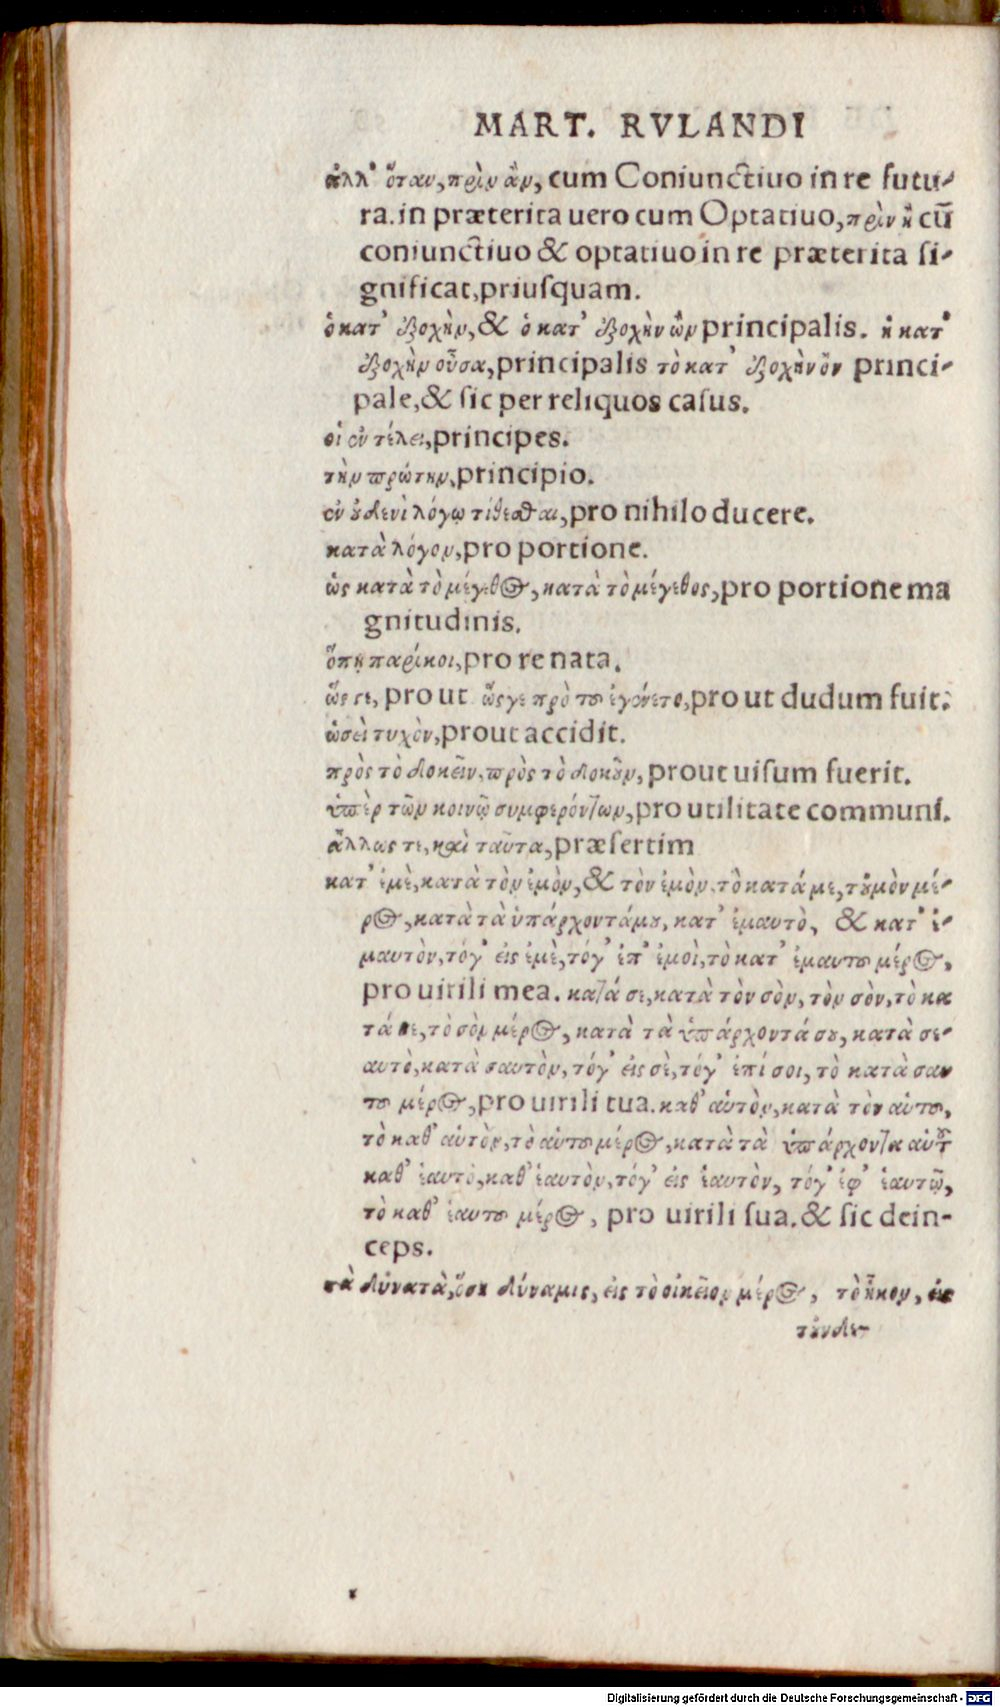 MART. RVLANDI
ἀλλ᾽ ὅταν, πρὶν ἂν, cum Coniunctiuo in re futu-
ra. in præterita uero cum Optatiuo, πρὶν ἢ cū
coniunctiuo & optatiuo in re præterita si-
gnificat, priusquam.
ὁ κατ᾽ ἐξοχὴν, & ὁ κατ᾽ ἐξοχὴν ὢν principalis. ἡ κατ᾽
ἐξοχὴν οὖσα, principalis τὸ κατ᾽ ἐξοχὴν ὂν princi-
pale, & sic per reliquos casus.
οἱ ἐν τέλει, principes.
τὴν πρώτην, principio.
ἐν οὐδενὶ λόγῳ τίθεσθαι, pro nihilo ducere.
κατὰ λόγον, pro portione.
ὡς κατὰ τὸ μέγεθος, κατὰ τὸ μέγεθος, pro portione ma
gnitudinis.
ὅπη παρίκοι, pro re nata.
ὥς γε, pro ut ὥς γε πρὸ τοῦ ἐγένετο, pro ut dudum fuit.
ὡσεὶ τυχὸν, prout accidit.
πρὸς τὸ δοκεῖν, πρὸς τὸ δοκοῦν, prout uisum fuerit.
ὑπὲρ τῶν κοινῇ συμφερόντων, pro utilitate communi.
ἄλλως τε, καὶ ταῦτα, præsertim
κατ᾽ ἐμὲ, κατὰ τὸν ἐμὸν, & τὸν ἐμὸν, τὸ κατά με, τοὐμὸν μέ-
ρος, κατὰ τὰ ὑπάρχοντά μου, κατ᾽ ἐμαυτὸ, & κατ᾽ ἐ-
μαυτὸν, τόγ᾽ εἰς ἐμὲ, τόγ᾽ ἐπ᾽ ἐμοὶ, τὸ κατ᾽ ἐμαυτοῦ μέρος,
pro uirili mea. κατά σε, κατὰ τὸν σὸν, τὸν σὸν, τὸ κα
τά σε, τὸ σὸν μέρος, κατὰ τὰ ὑπάρχοντά σου, κατὰ σε-
αυτὸ, κατὰ σαυτὸν, τόγ᾽ εἰς σὲ, τόγ᾽ ἐπί σοι, τὸ κατὰ σαυ
τοῦ μέρος, pro uirili tua. καθ᾽ αὑτὸν, κατὰ τὸν αὑτοῦ,
τὸ καθ᾽ αὑτὸν, τὸ αὑτοῦ μέρος, κατὰ τὰ ὑπάρχοντα αὑτοῦ
καθ᾽ ἑαυτὸ, καθ᾽ ἑαυτὸν, τόγ᾽ εἰς ἑαυτὸν, τόγ᾽ ἐφ᾽ ἑαυτῷ,
τὸ καθ᾽ ἑαυτοῦ μέρος, pro uirili sua. & sic dein-
ceps.
τὰ δύνατὰ, ὅση δύναμις, εἰς τὸ οἰκεῖον μέρος, τὸ ἧκον, εἰς
τοὐνδε-
Digitalisierung gefördert durch die Deutsche Forschungsgemeinschaft - DFG